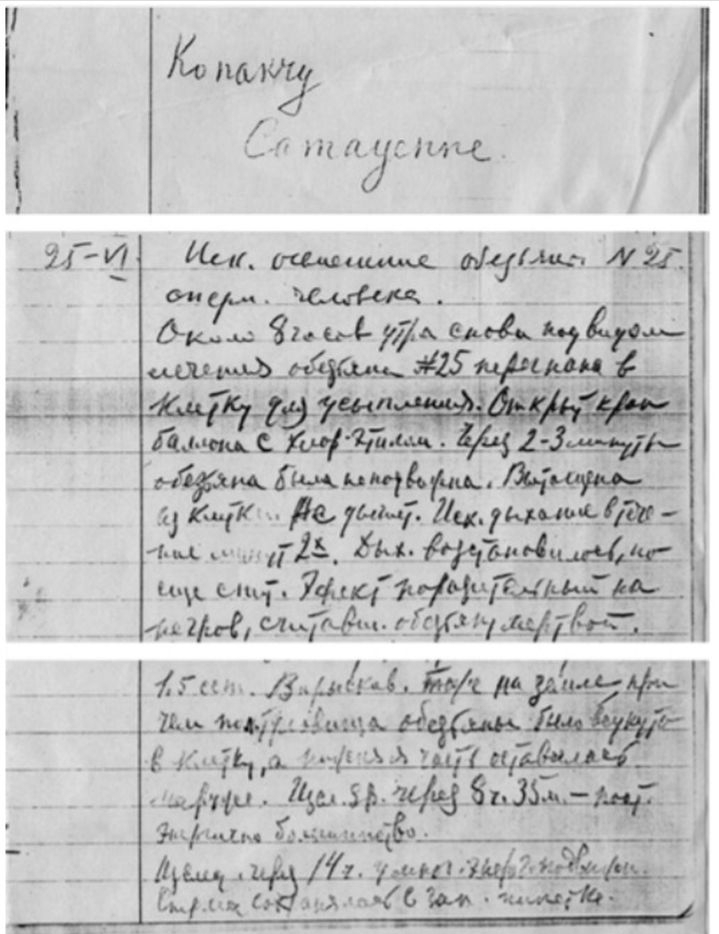 Копакчу
25-VI Иск. осеменение обезьян. N 25.
сперм. человека.
Около 8 часов утра снова под видом
лечения обезьяна #25 перегнана в
клетку для усыпления. Открыт кран
баллона с хлор-этилом. Через 2-3 минуты
обезьяна была неподвижна. Вытащена
из клетки. Не дышит. Иск. дыхание в тече-
ние минут 2х. Дых. возстановилось, но
еще спит. Эфект поразительный на
негров, считавш. обезьяну мертвой.
1.5 сст. Впрыскав. тоже на земле при
чем пол туловища обезьяны было всунуто
в клетку, а нижняя часть оставалась
наружу. Через 8 ч. 35 м. -
энергично большинство.
через 14 ч.
Сперма сохранялась в зап. пипетке.